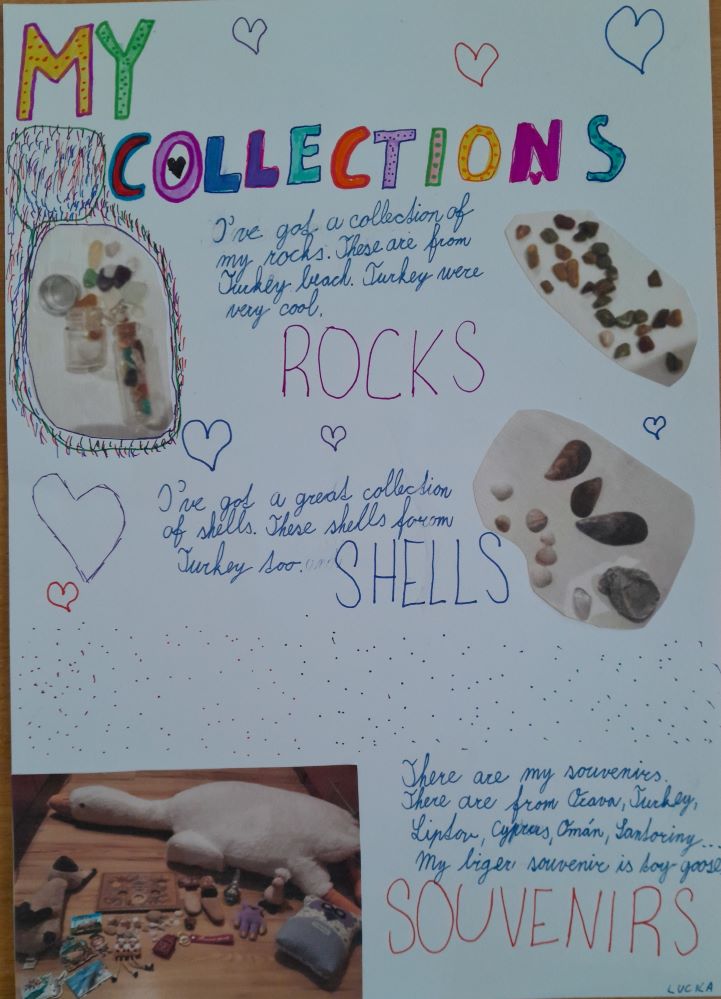 MY
COLLECTIONS
I've got a collection of
my rocks. These are from
Turkey beach. Turkey were
very cool.
ROCKS
I've got a great collection
of shells. These shells forom
Turkey too.
SHELLS
There are my souvenirs.
There are from Orava, Turkey,
Liptov, Cyprus, Omán, Santoriny...
My biger souvenir is toy goose
SOUVENIRS
LUCKA